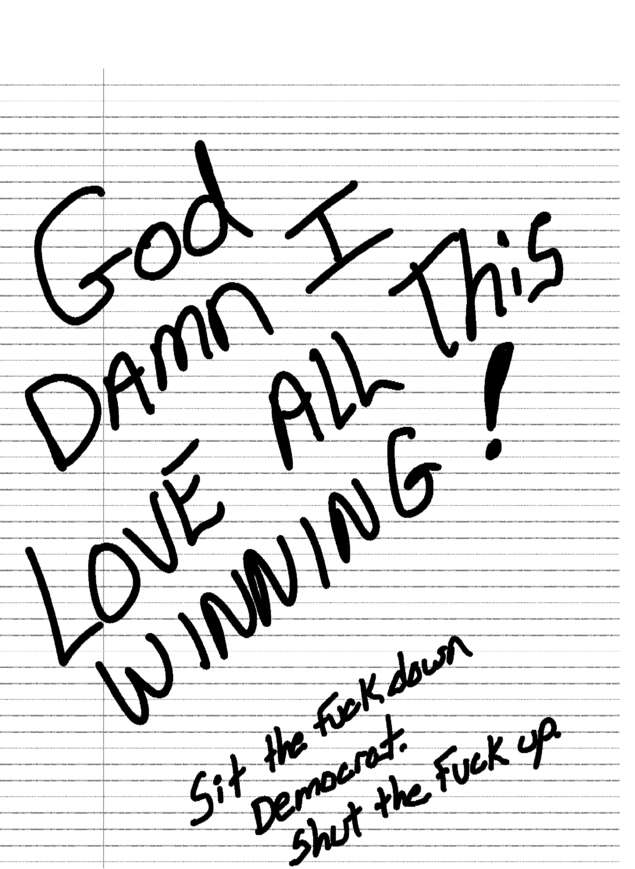 God
DAMN I
LOVE ALL This
WINNING!
Sit the Fuck down
Democrat.
Shut the Fuck up.